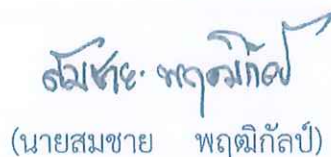 สมชาย พฤฒิกัลป์
(นายสมชาย พฤฒิกัลป์)